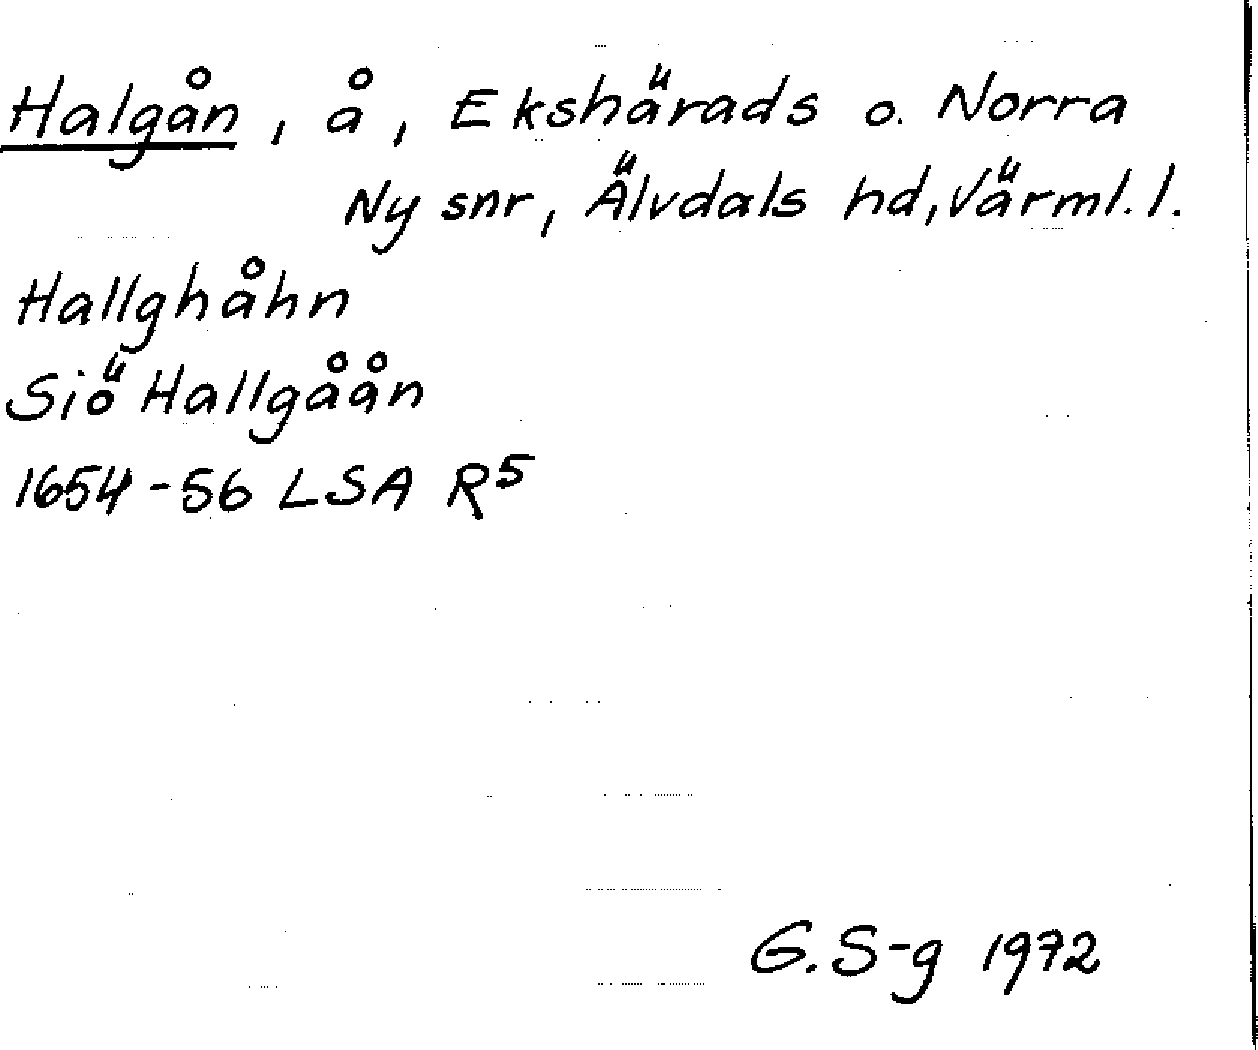 Halgån, å, Ekshärads o. Norra
Ny snr, Älvdals hd, Värml. l.
Hallghåhn
Siö Hallgåån
1654-56 LSA R5
G. S-g 1972